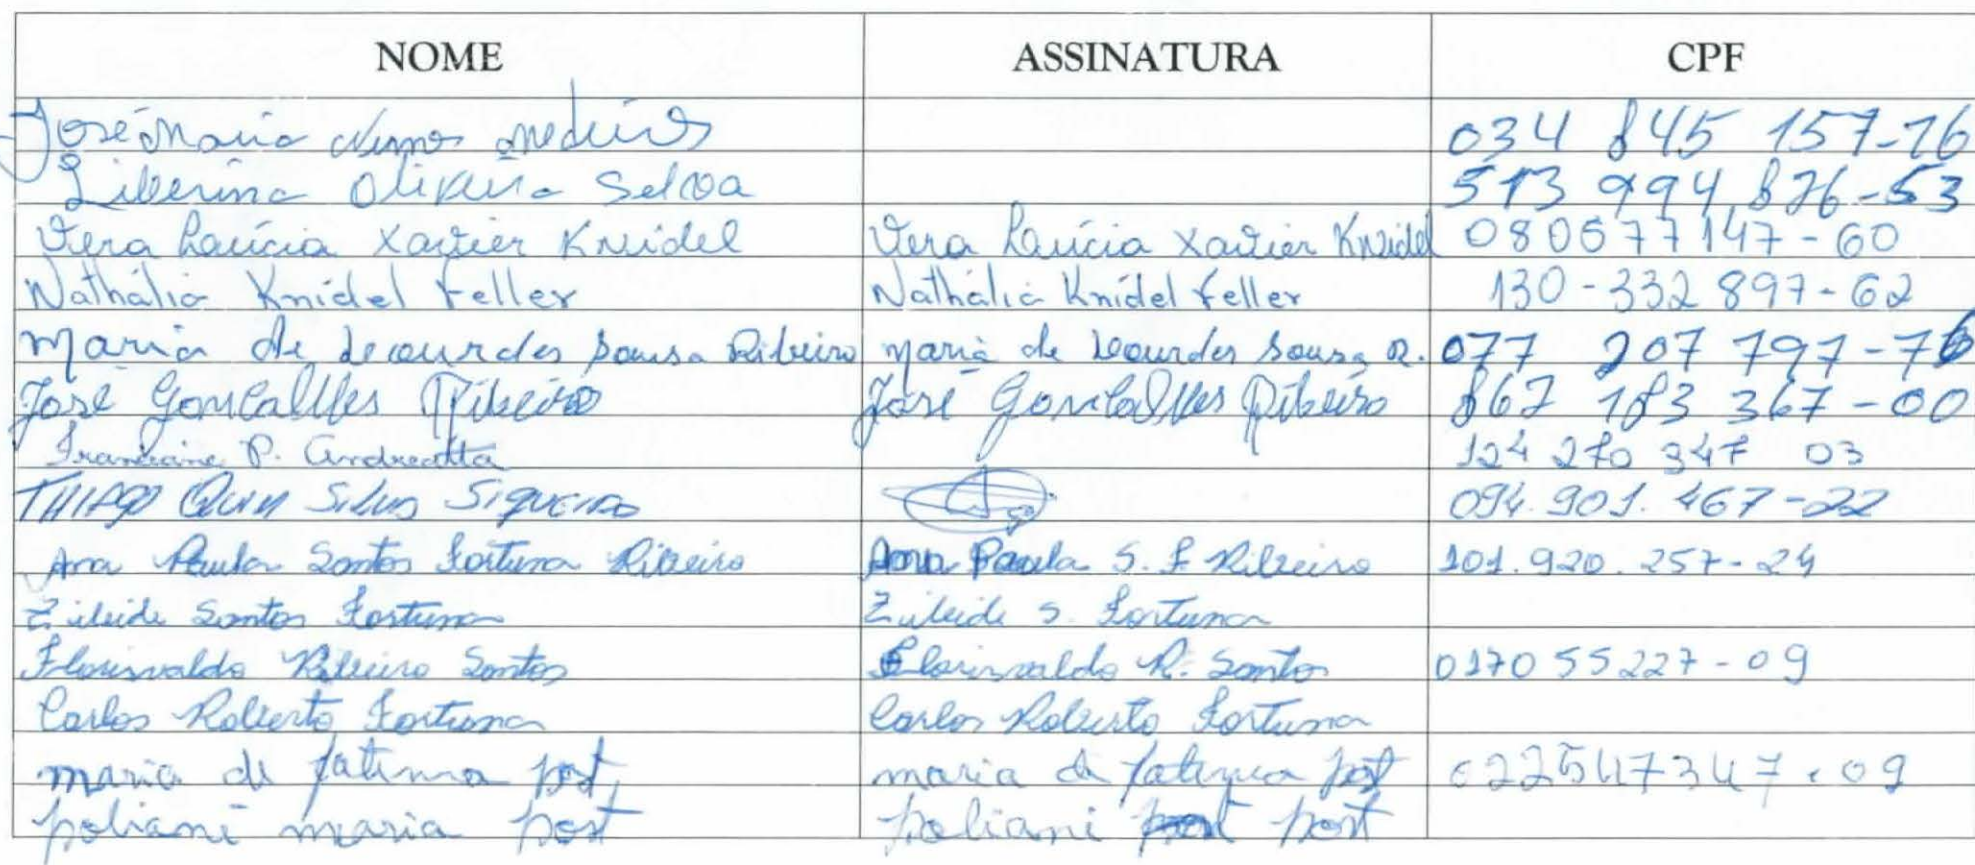 NOME ASSINATURA CPF
José Maria Nunes Medeiros 034 845 157-76
Liberina Oliveira Selva 513 994 876-53
Vera Laúcia Xavier Kneidel Vera Laúcia Xavier Kneidel 080577147-60
Nathália Knidel Feller Nathália Knidel Feller 130-332 897-62
Maria de Lecourdes Sousa Ribeiro Maria de Leourdes Sousa R. 077 207 797-76
José Goncallves Ribeiro José Goncallves Ribeiro 867 183 367-00
Franciane P. Andreatta 124 270 347 03
THIAGO Silva Siqueira 094.901.467-22
Ana Paula Santos Fortuna Ribeiro Ana Paula S. F Ribeiro 101.920.257-24
Zuleide Santos Fortuna Zuleide S. Fortuna
Florisvaldo Ribeiro Santos Florisvaldo R. Santos 017055227-09
Carlos Roberto Fortuna Carlos Roberto Fortuna
maria de fatima post maria de fatima post 022547347.09
poliani maria post poliani post